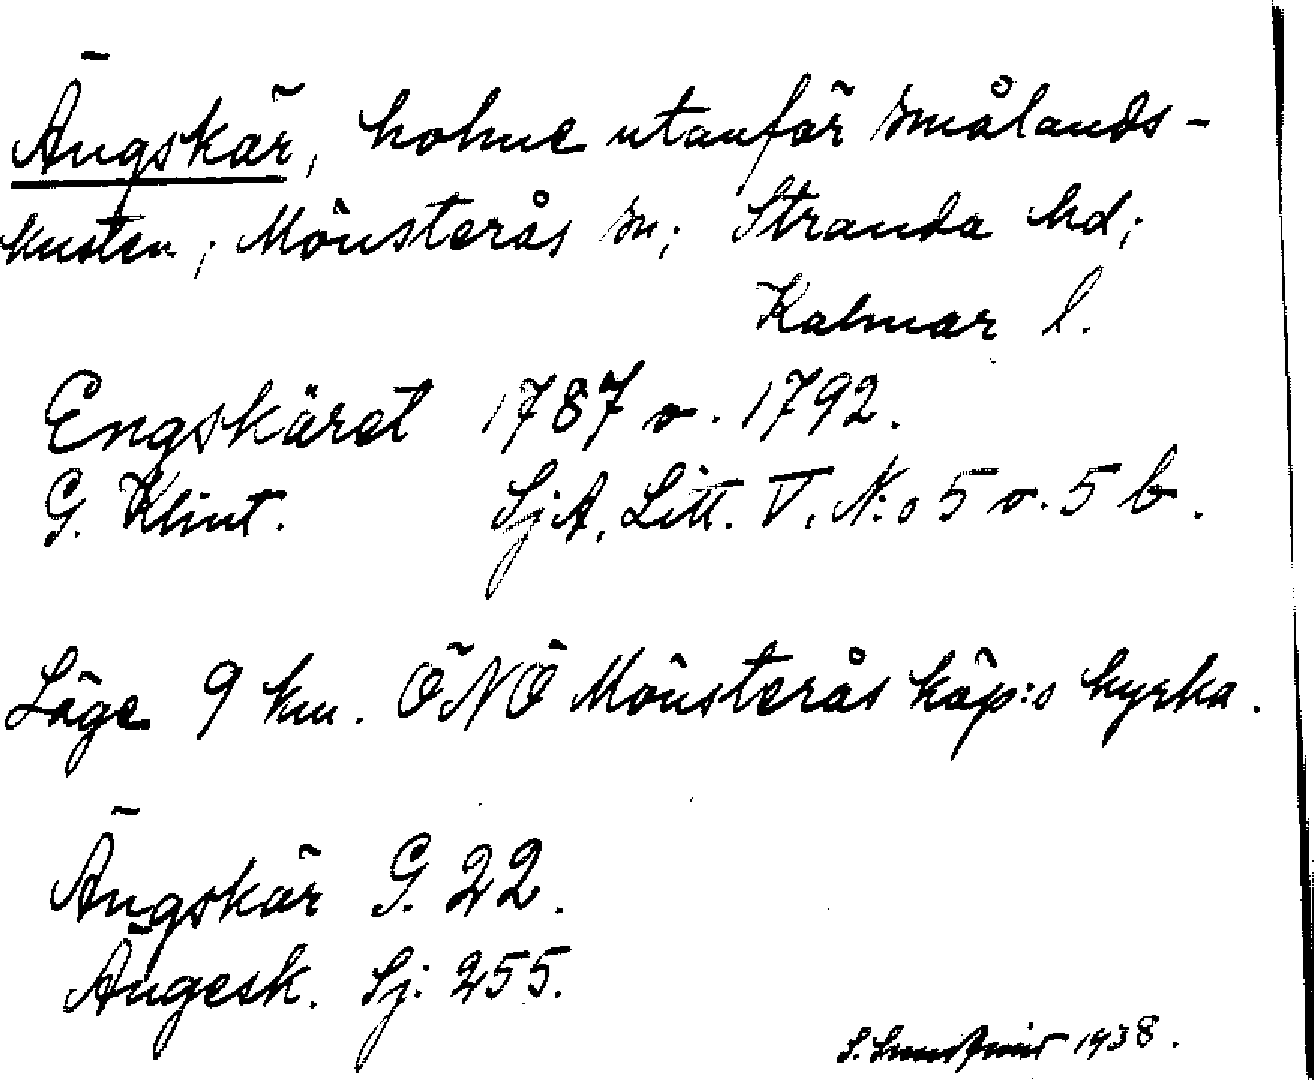 Ängskär, holme utanför Smålands-
kusten; Mönsterås sn; Stranda hd;
Kalmar l.
Engskäret 1787 o. 1792.
G. Klint. SjA, Litt. V. N:o 5 o. 5 b.
Läge 9 km. ÖNÖ Mönsterås köp:s kyrka.
Ängskär G. 22.
Ängesk. Sj. 255.
S. 1938.